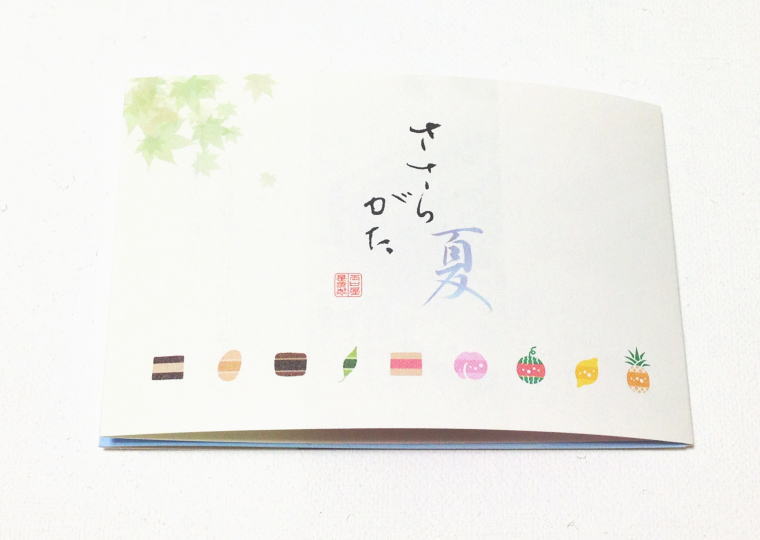 ささら
がた
夏